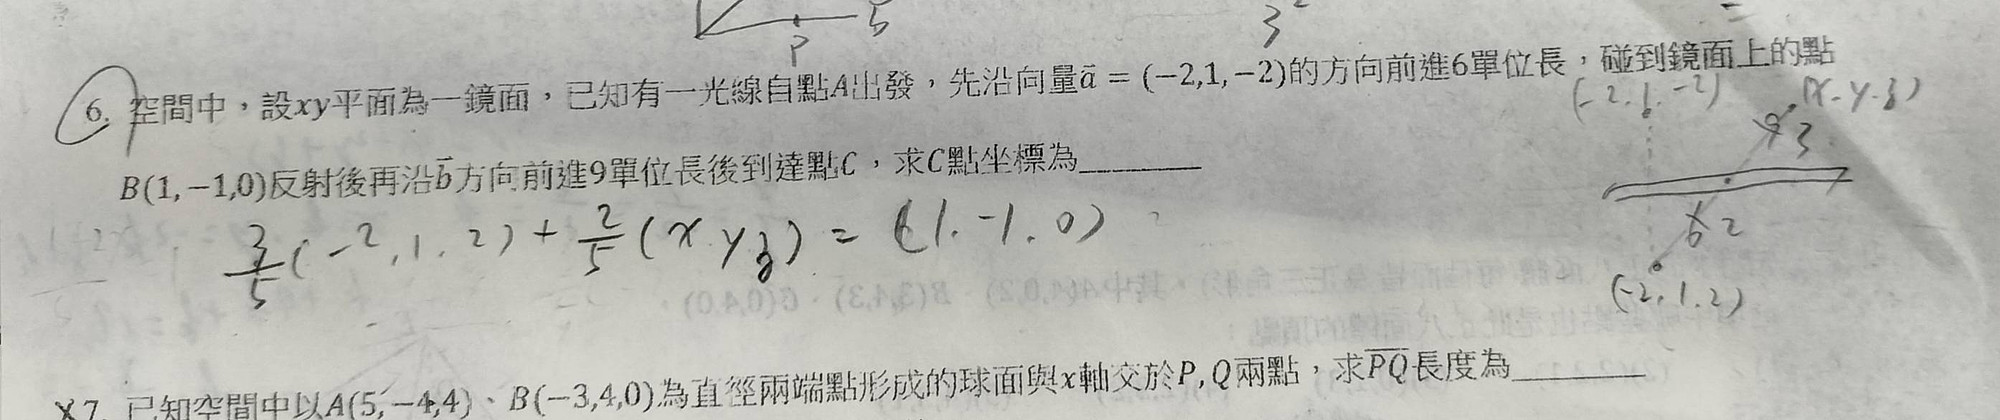 P 5 3
6. 空間中，設xy平面為一鏡面，已知有一光線自點A出發，先沿向量a⃗ = (−2,1,−2)的方向前進6單位長，碰到鏡面上的點
(-2.1.-2) (x.y.z)
9 3
B(1,−1,0)反射後再沿b⃗方向前進9單位長後到達點C，求C點坐標為______
3/5(-2,1.2)+2/5(x y z) = (1.-1.0)
6 2
(-2.1.2)
7. 已知空間中以A(5,−4,4)、B(−3,4,0)為直徑兩端點形成的球面與x軸交於P,Q兩點，求P̅Q̅長度為______